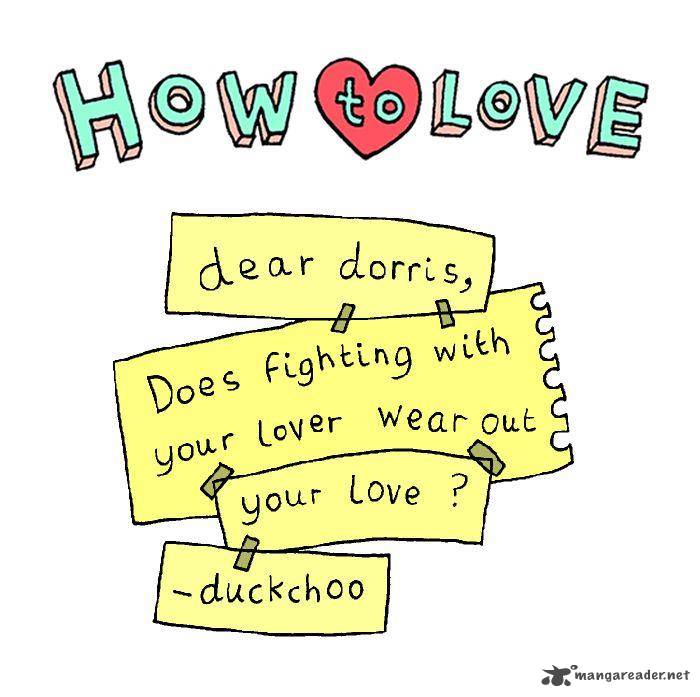 HOW to LOVE
dear dorris,
Does fighting with
your lover wear out
your love ?
-duckchoo
mangareader.net